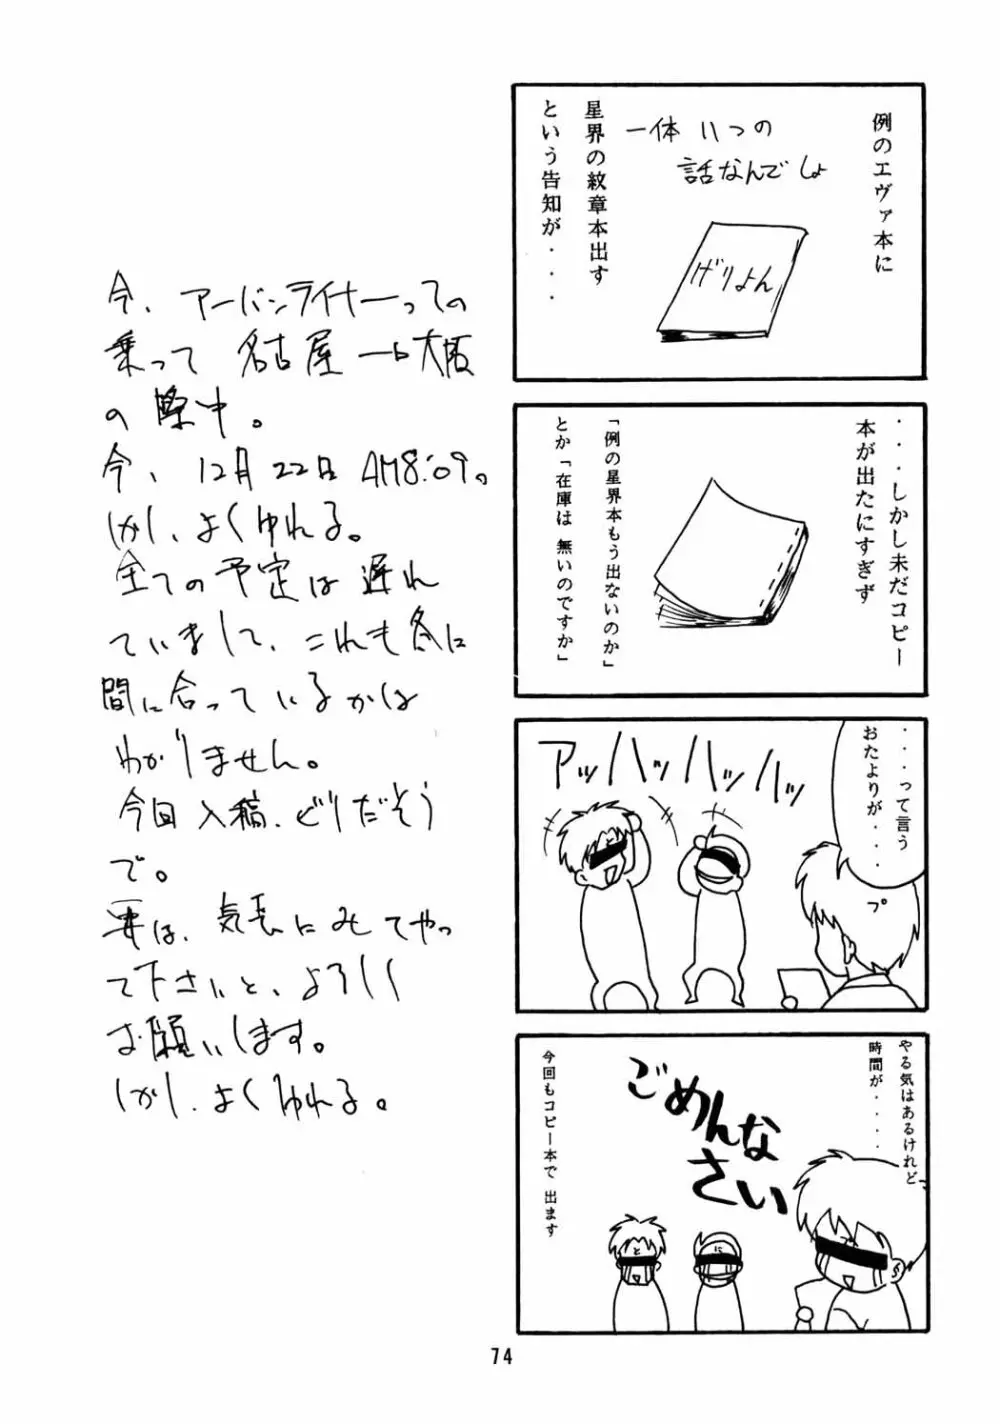 例のエヴァ本に
一体 いつの
話なんでしょ
げりよん
星界の紋章本出す
という告知が・・・・
・・・しかし未だコピー
本が出たにすぎず
「例の星界本もう出ないのか」
とか「在庫は 無いのですか」
・・・って言う
おたよりが・・・・
プ
アッハッハッハッ
やる気はあるけれど
時間が・・・・
ごめんな
さい
と
に
プ
今回もコピー本で 出ます
今、アーバンライナーっての
乗って 名古屋→大阪
の 際中。
今、12月22日 AM8:09。
しかし、よくゆれる。
全ての予定は遅れ
ていまして、これも冬に
間に合っているかは
わかりません。
今回入稿、どりだそう
で。
要は、気長にみてやっ
て下さいと、よろしく
お願いします。
しかし、よくゆれる。
74